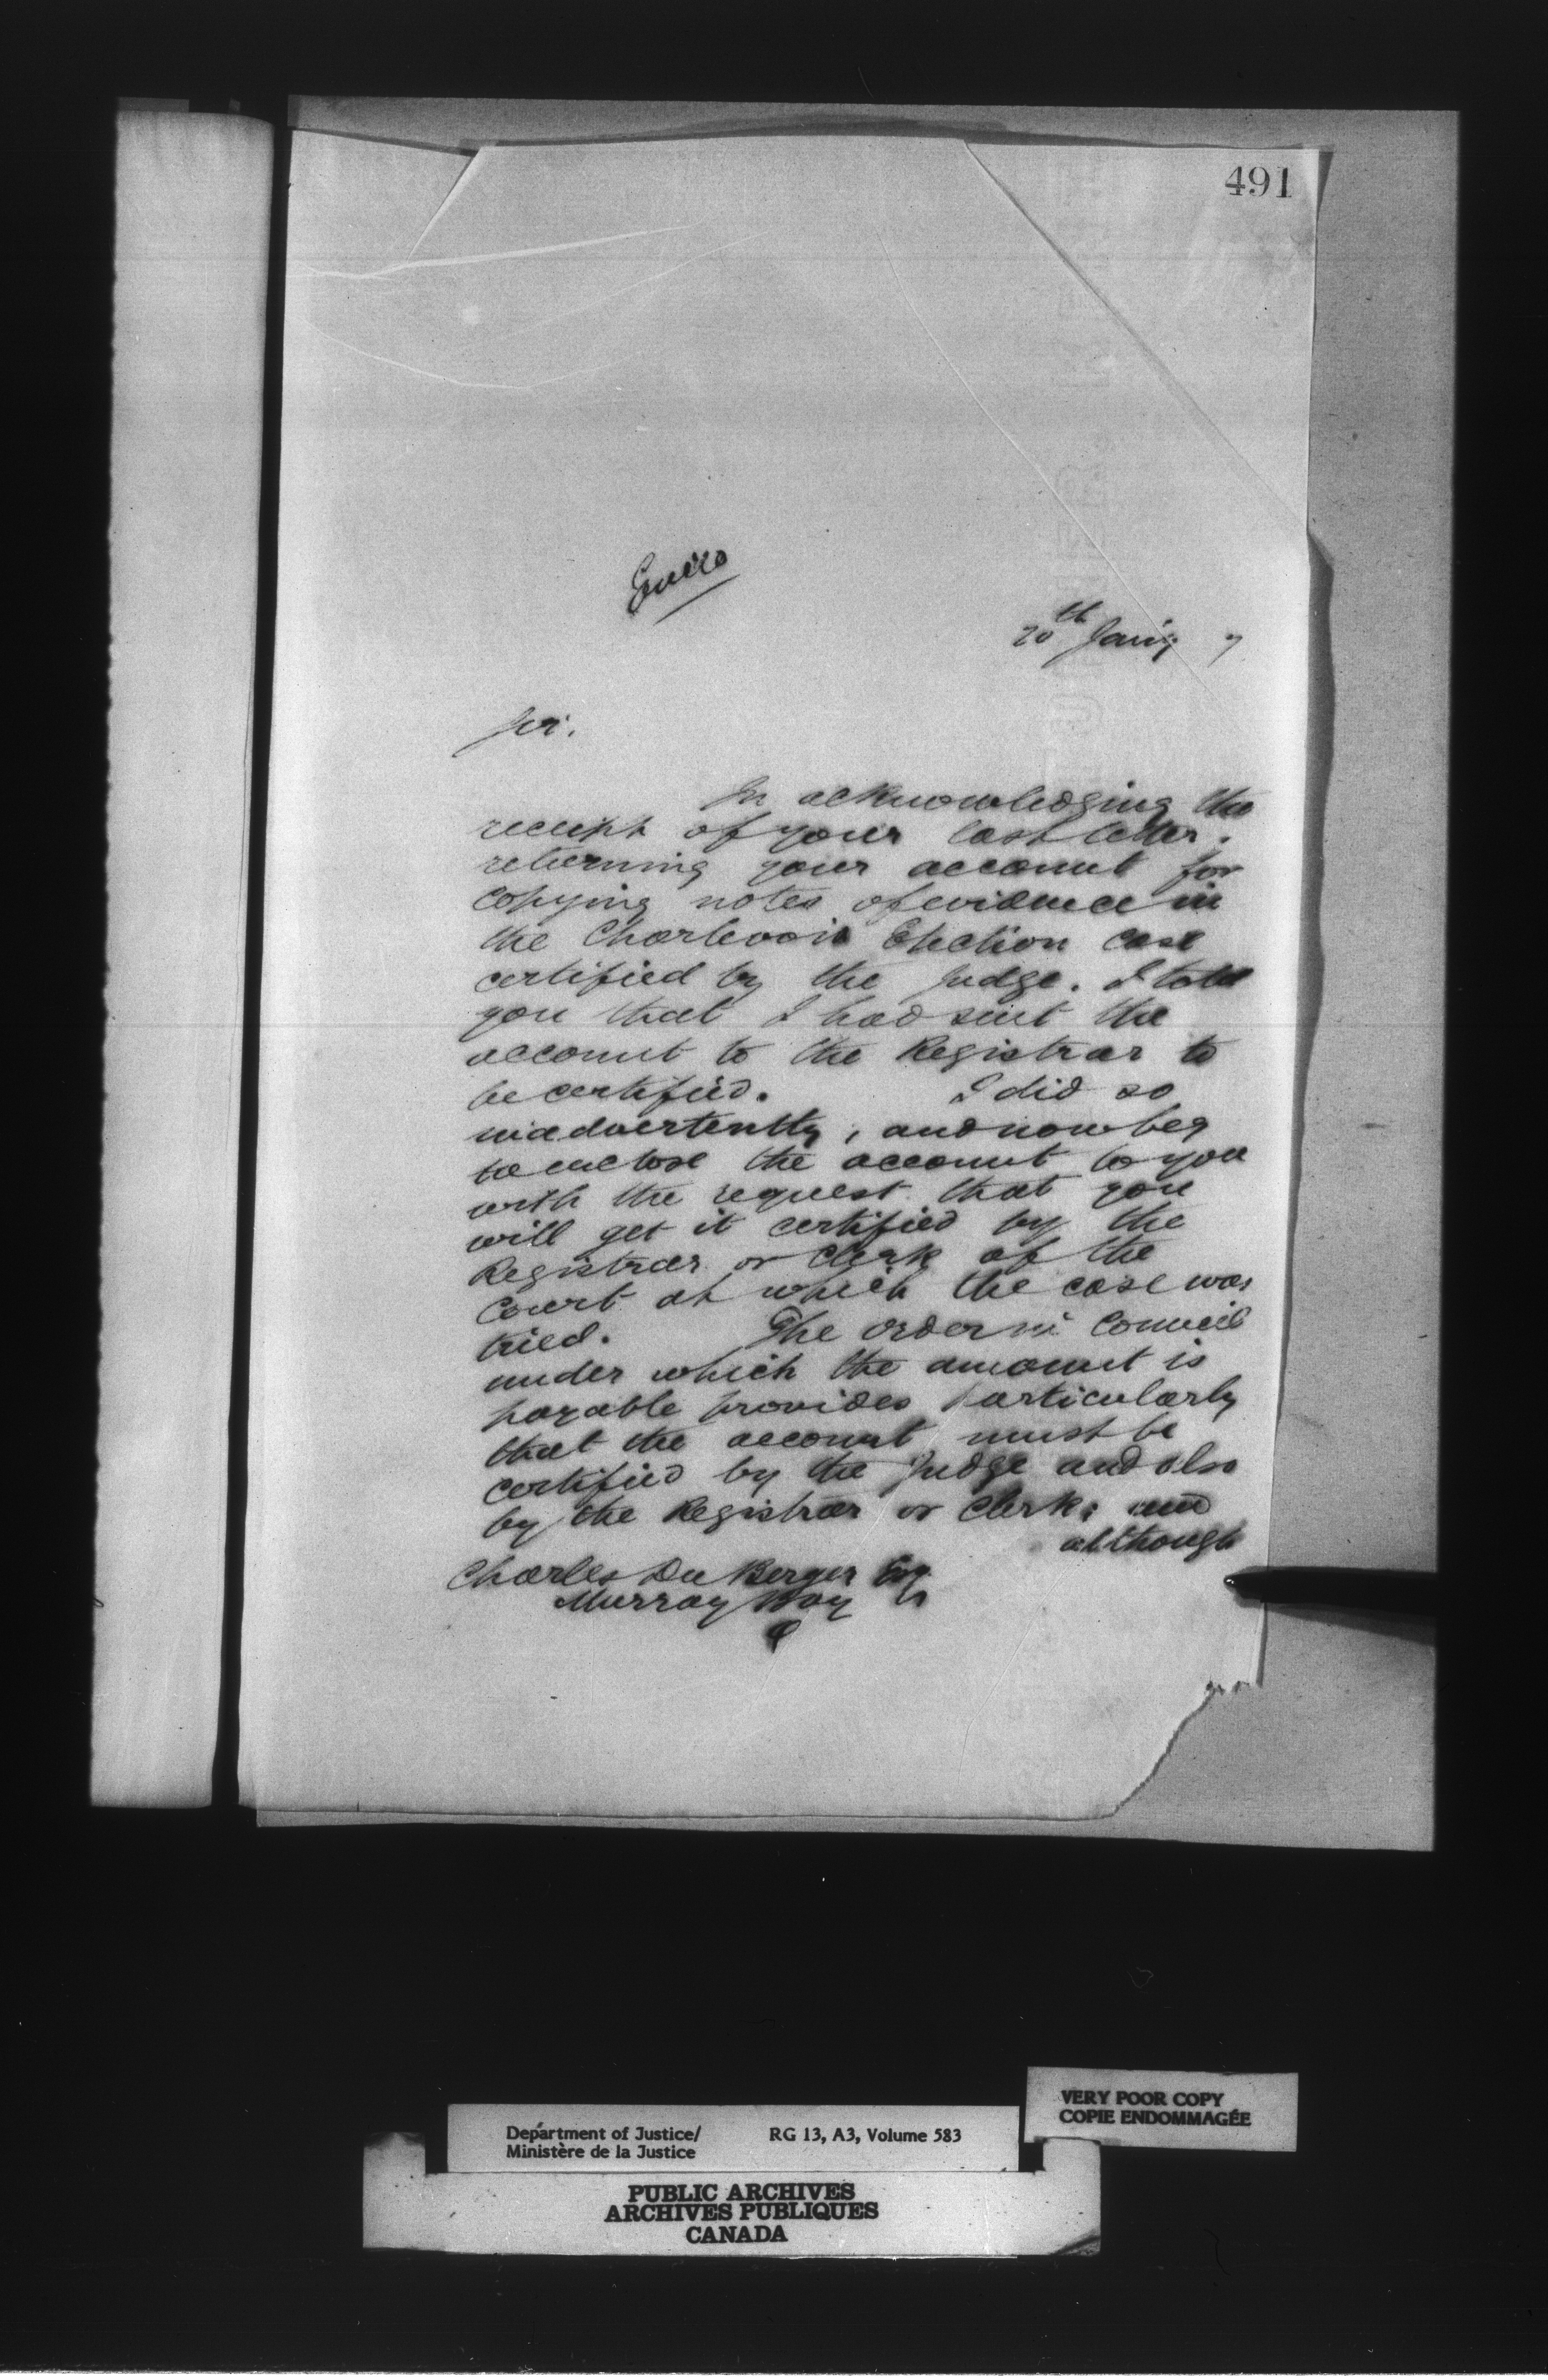 491
20th Jany 7
Sir.
In acknowledging the
receipt of your last letter,
returning your account for
copying notes of evidence in
the Charlevoix Election case
certified by the Judge. I told
you that I had sent the
account to the Registrar to
be certified. I did so
inadvertently, and now beg
to enclose the account to you
with the request that you
will get it certified by the
Registrar or Clerk of the
Court at which the case was
tried. The order in Council
under which the amount is
payable provides particularly
that the account must be
certified by the Judge and also
by the Registrar or Clerk; and
although
Charles Du Berger Esq
Murray Bay
Q
VERY POOR COPY
COPIE ENDOMMAGÉE
Department of Justice/ RG 13, A3, Volume 583
Ministère de la Justice
PUBLIC ARCHIVES
ARCHIVES PUBLIQUES
CANADA